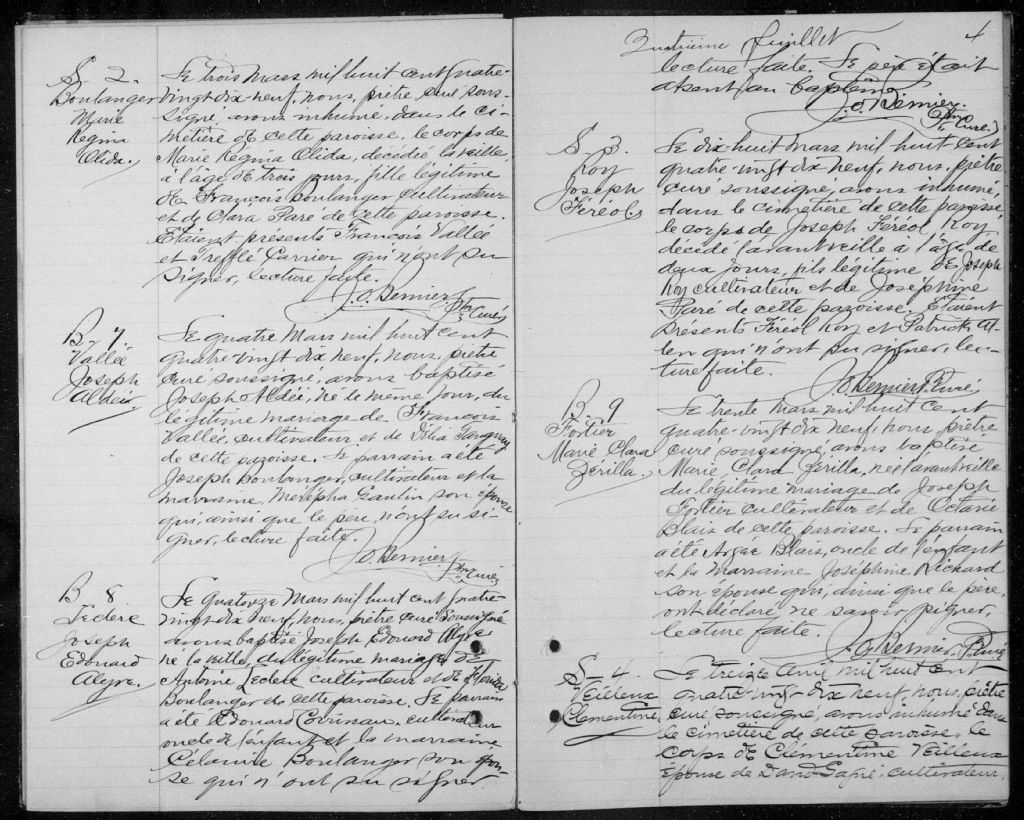 S. 2.
Boulanger
Marie
Regina
Olida.
Le trois Mars mil huit cent quatre-
vingt dix-neuf, nous, prêtre curé sous-
signé, avons inhumé, dans le ci-
metière de cette paroisse, le corps de
Marie Regina Olida, décédée la veille,
à l'âge de trois jours, fille légitime
de François Boulanger cultivateur
et de Clara Paré de cette paroisse.
Etaient présents François Vallée
et Treffle Carrier qui n'ont su
signer, lecture faite.
J. O. Bernier Ptre Curé
B. 7
Vallée
Joseph
Aldéé
Le quatre Mars mil huit cent
quatre-vingt dix neuf, nous, prêtre
curé soussigné, avons baptisé
Joseph Aldéé, né le même jour, du
légitime mariage de François
Vallée, cultivateur et de Délia
de cette paroisse. Le parrain a été
Joseph Boulanger, cultivateur et la
marraine, Gaulin son épouse
qui, ainsi que le père, n'ont su si-
gner, lecture faite.
J. O. Bernier Ptre Curé
B. 8
Leclerc
Joseph
Edouard
Le quatorze Mars mil huit cent quatre-
vingt dix neuf, nous, prêtre curé soussigné
avons baptisé Joseph Edouard
né la veille, du légitime mariage de
Antoine Leclerc cultivateur et de Florida
Boulanger de cette paroisse. Le parrain
a été Edouard cultivateur
oncle de l'enfant et la marraine
Célanire Boulanger son épou-
se qui n'ont su signer
Quatrième feuillet 4
lecture faite. Le père était
absent au baptême
J. O. Bernier
Ptre Curé
S. 3
Roy
Joseph
Féréol
Le dix huit Mars mil huit cent
quatre-vingt dix neuf, nous, prêtre
curé soussigné, avons inhumé,
dans le cimetière de cette paroisse
le corps de Joseph Féréol Roy
décédé l'avant veille à l'âge de
deux jours, fils légitime de Joseph
Roy cultivateur et de Joséphine
Paré de cette paroisse. Etaient
présents Féréol Roy et Patrick Al-
len qui n'ont su signer, lec-
ture faite.
J. O. Bernier P. Curé
B. 9
Fortier
Marie Clara
Zerilla.
Le trente Mars mil huit cent
quatre-vingt dix neuf, nous, prêtre
curé soussigné, avons baptisé
Marie Clara Zerilla, née l'avant veille
du légitime mariage de Joseph
Fortier cultivateur et de Octavie
Blais de cette paroisse. Le parrain
a été Blais, oncle de l'enfant
et la Marraine Joséphine Richard
son épouse qui, ainsi que le père,
ont déclaré ne savoir signer,
lecture faite.
J. O. Bernier P. Curé
S. 4.
Veilleux
Clementine
Le treize Avril mil huit cent
quatre-vingt dix neuf, nous, prêtre
curé soussigné, avons inhumé dans
le cimetière de cette paroisse, le
corps de Clémentine Veilleux
épouse de David cultivateur.